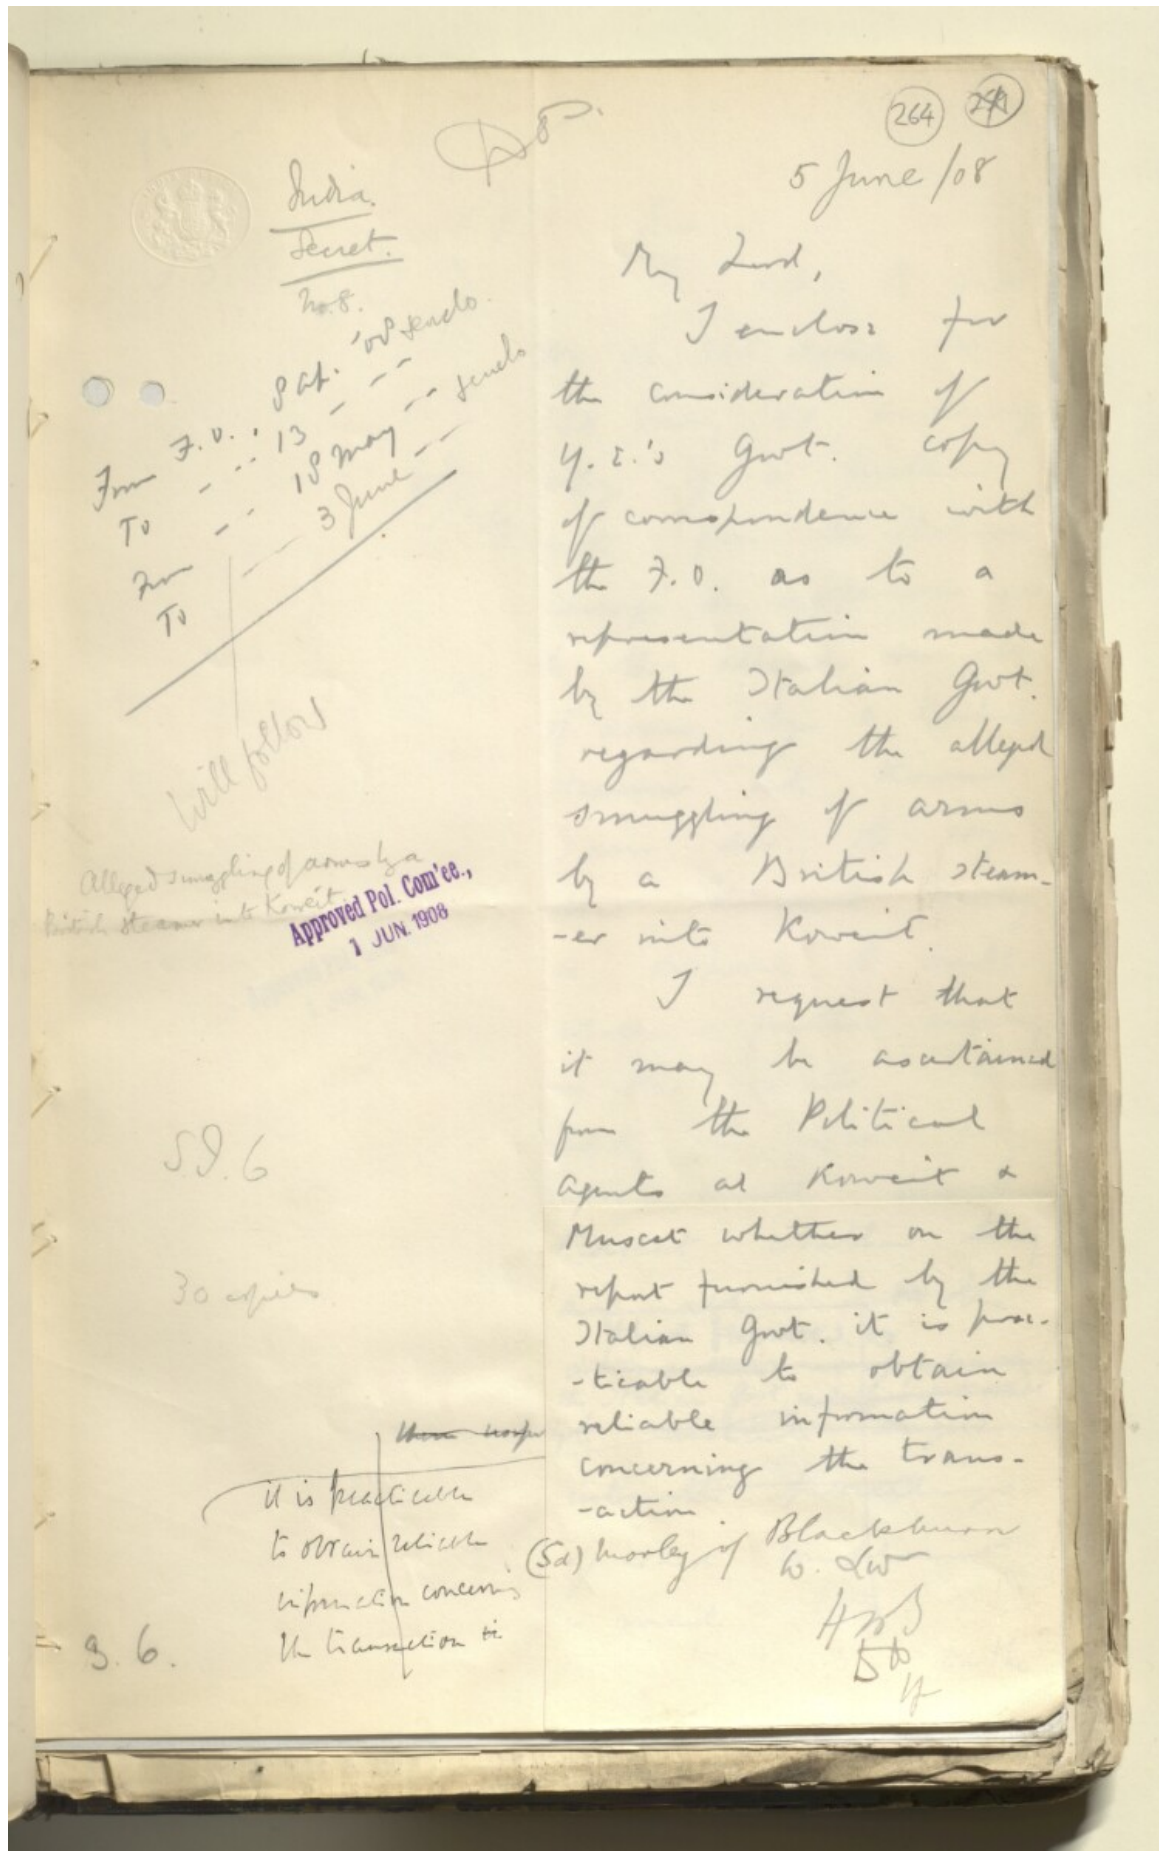 264
5 June /08
India.
Secret.
No. 8.
From F.O. 8 Apl. '08
To " " 13 " "
From " " 18 May " "
To 3 June " "
Will follow
Alleged smuggling of arms by a
British steamer into Koweit.
Approved Pol. Com'ee.,
1 JUN. 1908
S.S. 6
30 copies
it is practicable
to obtain reliable
information concerning
the transaction
3. 6.
My Lord,
I enclose for
the consideration of
Y.E.'s Govt. copy
of correspondence with
the F.O. as to a
representation made
by the Italian Govt.
regarding the alleged
smuggling of arms
by a British steam-
-er into Koweit.
I request that
it may be ascertained
from the Political
Agents at Koweit &
Muscat whether on the
report furnished by the
Italian Govt. it is prac-
-ticable to obtain
reliable information
concerning the trans-
-action.
(Sd) Morley of Blackburn